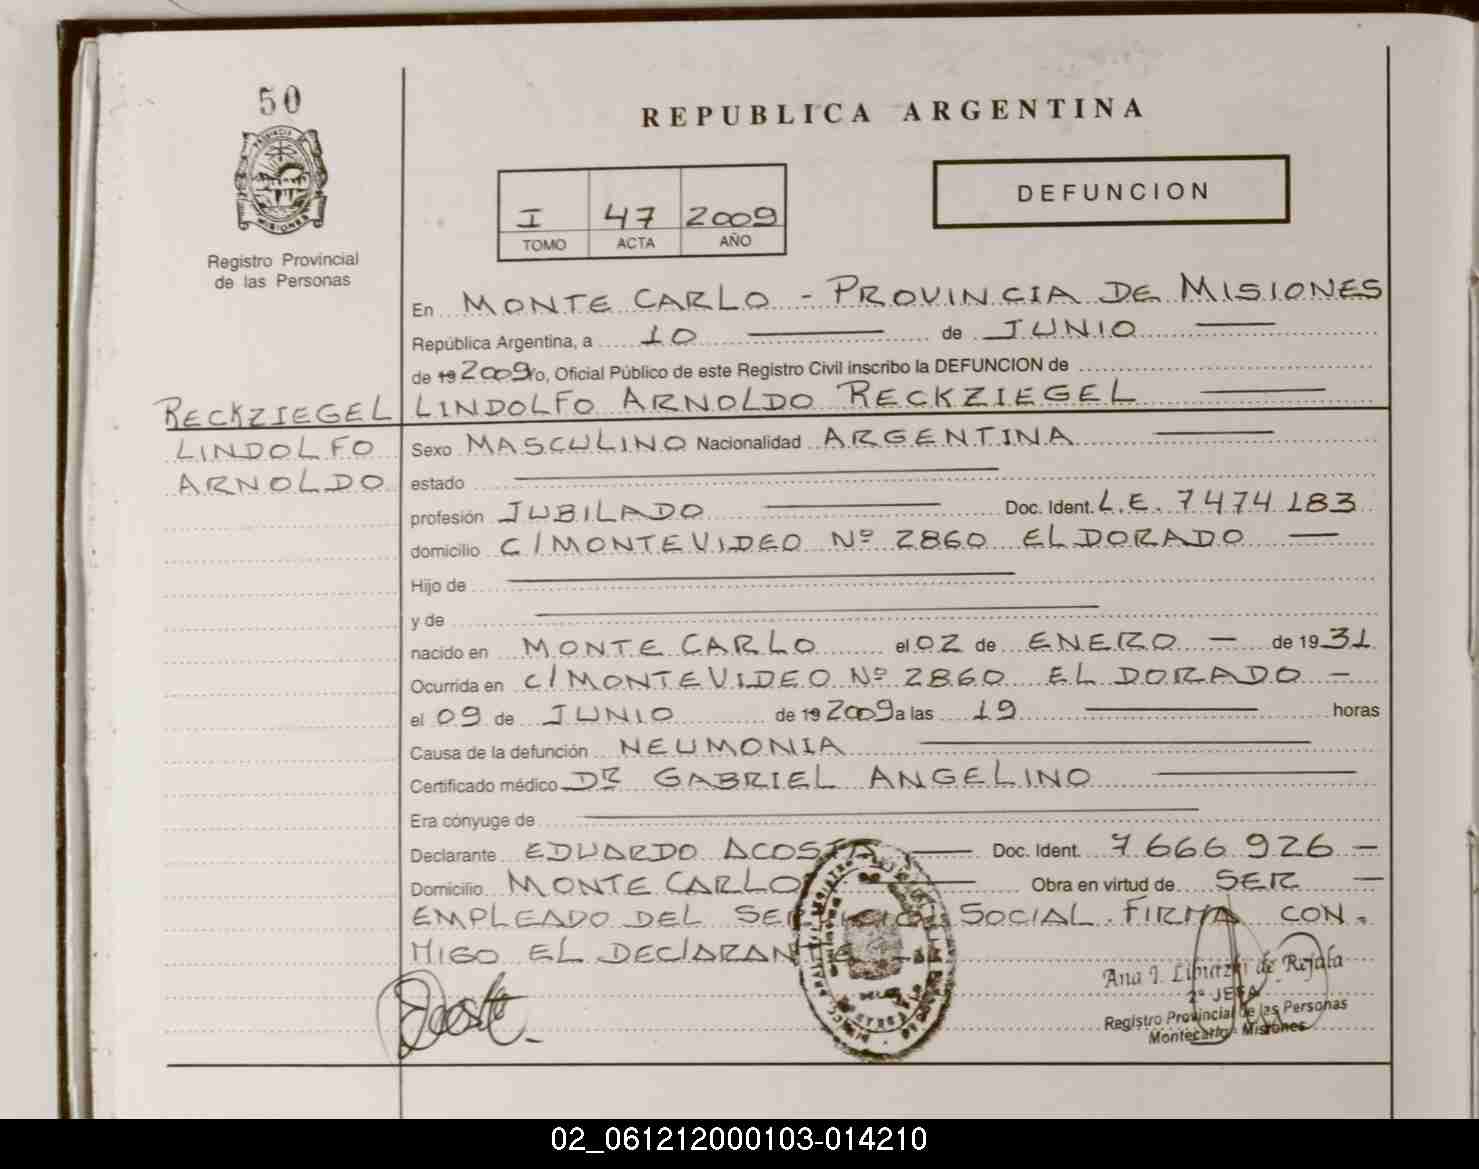 50
PROVINCIA DE
MISIONES
Registro Provincial
de las Personas
REPUBLICA ARGENTINA
I 47 2009
TOMO ACTA AÑO
DEFUNCION
En MONTE CARLO - PROVINCIA DE MISIONES
República Argentina, a 10 de JUNIO
de 19 2009 Yo, Oficial Público de este Registro Civil inscribo la DEFUNCION de
RECKZIEGEL LINDOLFO ARNOLDO RECKZIEGEL
LINDOLFO Sexo MASCULINO Nacionalidad ARGENTINA
ARNOLDO estado
profesión JUBILADO Doc. Ident. L.E. 7474183
domicilio C/MONTEVIDEO Nº 2860 ELDORADO
Hijo de
y de
nacido en MONTE CARLO el 02 de ENERO - de 19 31
Ocurrida en C/MONTEVIDEO Nº 2860 EL DORADO -
el 09 de JUNIO de 19 2009 a las 19 horas
Causa de la defunción NEUMONIA
Certificado médico DR GABRIEL ANGELINO
Era cónyuge de
Declarante EDUARDO ACOSTA Doc. Ident. 7.666.926 -
Domicilio MONTE CARLO Obra en virtud de SER -
EMPLEADO DEL SERVICIO SOCIAL. FIRMA CON-
MIGO EL DECLARANTE
Acosta
Ana I. de Rejala
2º JEFA
Registro Provincial de las Personas
Montecarlo - Misiones
02_061212000103-014210